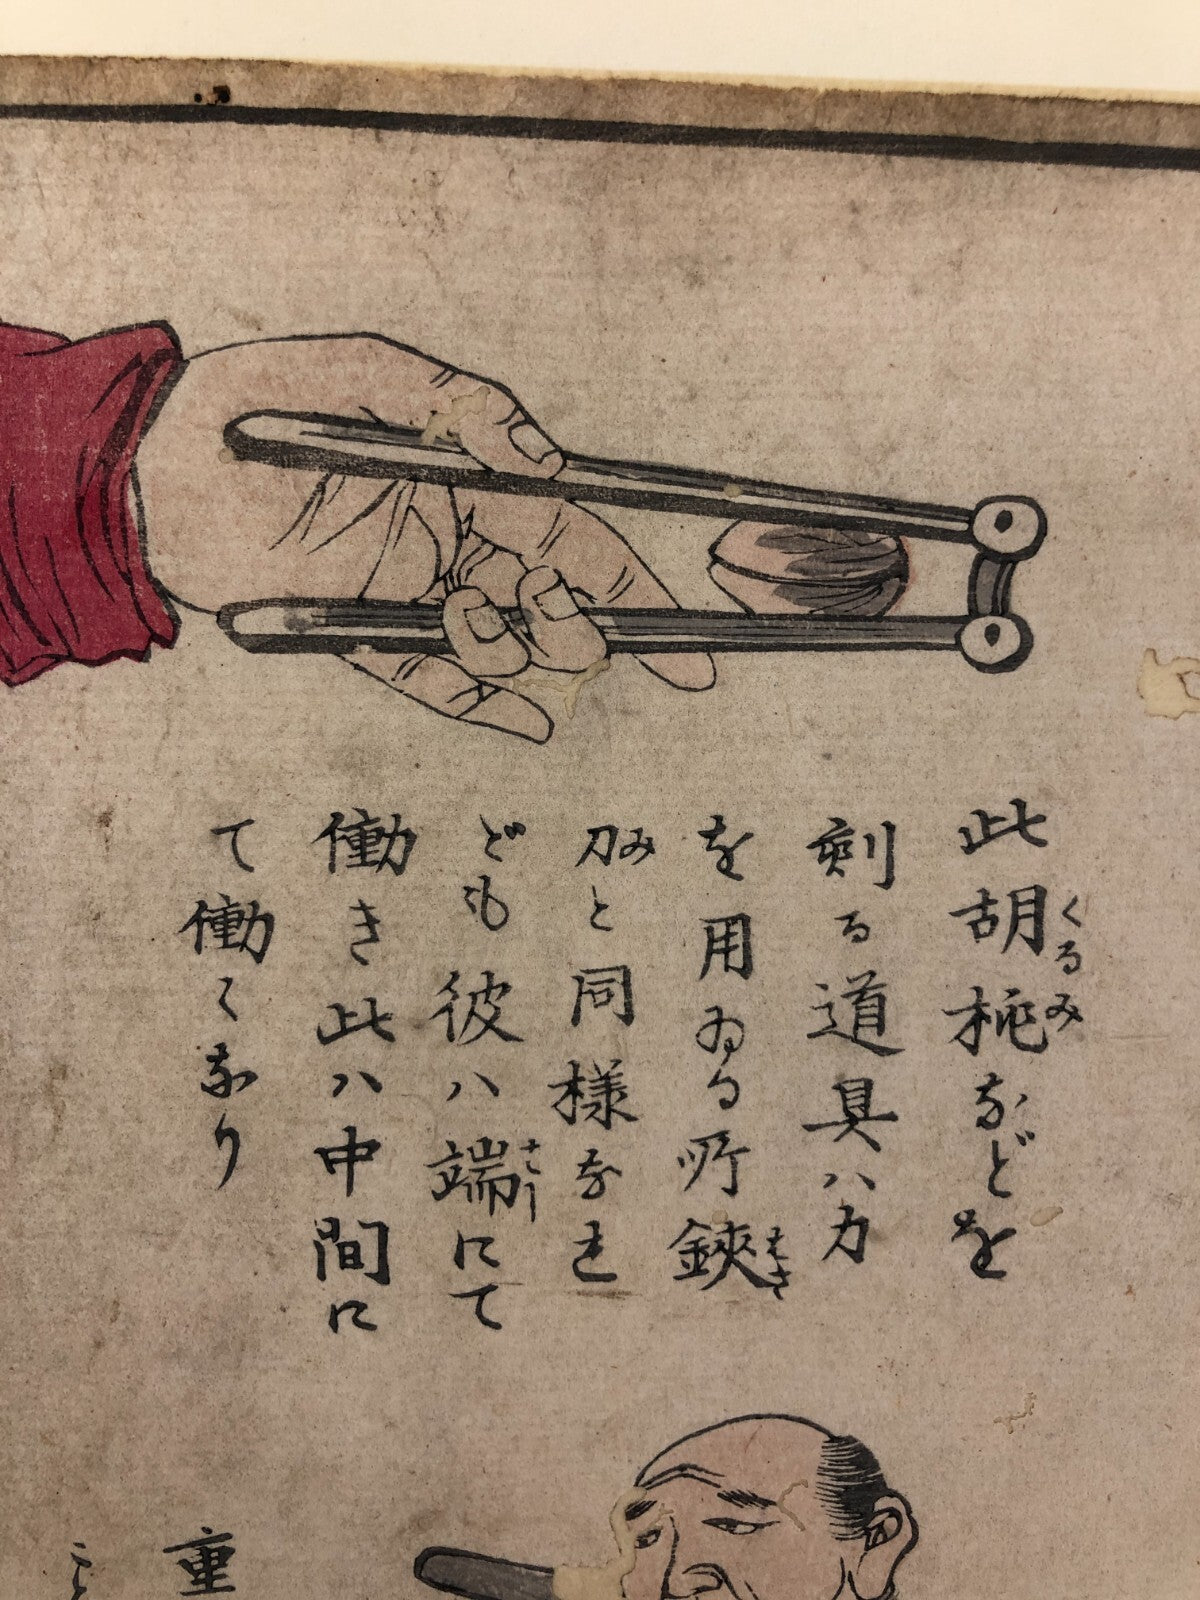 此胡桃などを
くるみ
剝る道具ハ力
を用ゐる所鋏
はさ
刀と同様なれ
み
ども彼ハ端にて
さー
働き此ハ中間に
て働くなり
重